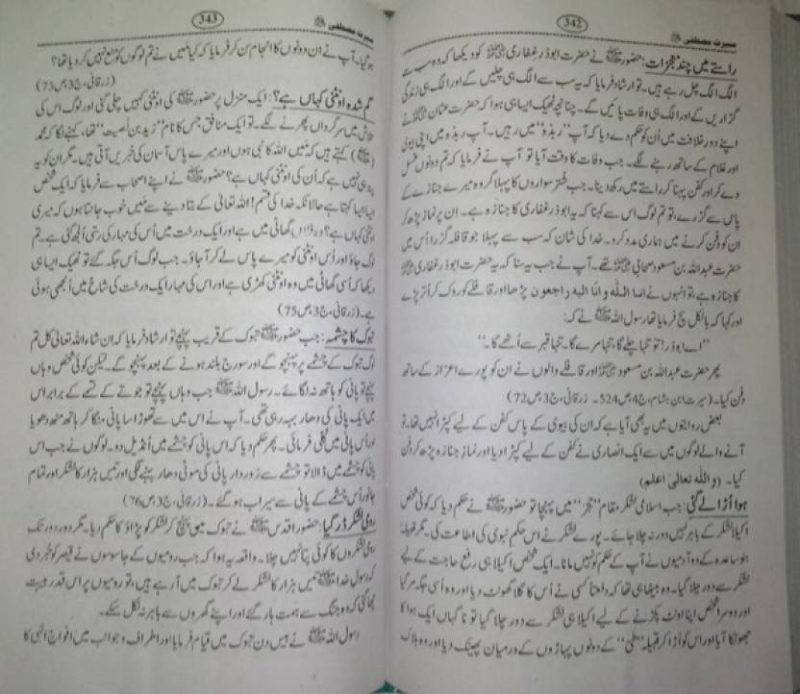 342
سیرت مصطفی ﷺ
راستے میں چند معجزات: حضور ﷺ نے حضرت ابوذر غفاری کو دیکھا کہ وہ سب سے
الگ الگ چل رہے ہیں۔ تو ارشاد فرمایا کہ یہ سب سے الگ ہی چلیں گے اور الگ ہی زندگی
گزاریں گے اور الگ ہی وفات پائیں گے۔ چنانچہ ٹھیک ایسا ہی ہوا کہ حضرت عثمان نے
اپنے دور خلافت میں ان کو حکم دے دیا کہ آپ "ربذہ" میں رہیں۔ آپ ربذہ میں اپنی بیوی
اور غلام کے ساتھ رہنے لگے۔ جب وفات کا وقت آیا تو آپ نے فرمایا کہ تم دونوں غسل
دے کر اور کفن پہنا کر راستے میں رکھ دینا۔ جب شتر سواروں کا پہلا گروہ میرے جنازے کے
پاس سے گزرے تو تم لوگ اس سے کہنا کہ یہ ابوذر غفاری کا جنازہ ہے۔ ان پر نماز پڑھ کر
ان کو دفن کرنے میں ہماری مدد کرو۔ خدا کی شان کہ سب سے پہلا جو قافلہ گزرا اس میں
حضرت عبداللہ بن مسعود صحابی تھے۔ آپ نے جب یہ سنا کہ یہ حضرت ابوذر غفاری
کا جنازہ ہے تو انہوں نے انا للہ وانا الیہ راجعون پڑھا اور قافلے کو روک کر اتر پڑے
اور کہا کہ بالکل سچ فرمایا تھا رسول اللہ ﷺ نے کہ:
"اے ابوذر! تو تنہا چلے گا، تنہا مرے گا، تنہا قبر سے اٹھے گا۔"
پھر حضرت عبداللہ بن مسعود اور قافلے والوں نے ان کو پورے اعزاز کے ساتھ
دفن کیا۔ (سیرت ابن ہشام، ج4، ص524۔ زرقانی، ج3، ص72)
بعض روایتوں میں یہ بھی آیا ہے کہ ان کی بیوی کے پاس کفن کے لیے کپڑا نہیں تھا۔ تو
آنے والے لوگوں میں سے ایک انصاری نے کفن کے لیے کپڑا دیا اور نماز جنازہ پڑھ کر دفن
کیا۔ (واللہ تعالیٰ اعلم)
ہوا اڑا لے گئی: جب اسلامی لشکر مقام "حجر" میں پہنچا تو حضور ﷺ نے حکم دیا کہ کوئی شخص
اکیلا لشکر کے باہر نہیں دور نہ چلا جائے۔ پورے لشکر نے اس حکم نبوی کی اطاعت کی۔ مگر قبیلہ
بنو ساعدہ کے دو آدمیوں نے آپ کے حکم کو نہیں مانا۔ ایک شخص اکیلا ہی رفع حاجت کے لیے
لشکر سے دور چلا گیا۔ وہ بیٹھا ہی تھا کہ دفعتاً کسی نے اس کا گلا گھونٹ دیا اور وہ اسی جگہ مر گیا
اور دوسرا شخص اپنا اونٹ پکڑنے کے لیے اکیلا ہی لشکر سے دور چلا گیا تو ناگہاں ایک ہوا کا
جھونکا آیا اور اس کو اڑا کر قبیلہ "طی" کے دونوں پہاڑوں کے درمیان پھینک دیا اور وہ ہلاک
343
سیرت مصطفی ﷺ
ہو گیا۔ آپ نے ان دونوں کا انجام سن کر فرمایا کہ کیا میں نے تم لوگوں کو منع نہیں کر دیا تھا؟
(زرقانی، ج3، ص73)
گم شدہ اونٹنی کہاں ہے؟: ایک منزل پر حضور ﷺ کی اونٹنی کہیں چلی گئی اور لوگ اس کی
تلاش میں سرگرداں پھرنے لگے۔ تو ایک منافق جس کا نام "زید بن لصیت" تھا، کہنے لگا کہ محمد
(ﷺ) کہتے ہیں کہ میں اللہ کا نبی ہوں اور میرے پاس آسمان کی خبریں آتی ہیں۔ مگر ان کو یہ
پتا ہی نہیں ہے کہ ان کی اونٹنی کہاں ہے؟ حضور ﷺ نے اپنے اصحاب سے فرمایا کہ ایک شخص
ایسا ایسا کہتا ہے حالانکہ خدا کی قسم! اللہ تعالیٰ کے بتا دینے سے میں خوب جانتا ہوں کہ میری
اونٹنی کہاں ہے؟ وہ فلاں گھاٹی میں ہے اور ایک درخت میں اس کی مہار کی رسی الجھ گئی ہے۔ تم
لوگ جاؤ اور اس اونٹنی کو میرے پاس لے کر آ جاؤ۔ جب لوگ اس جگہ گئے تو ٹھیک ایسا ہی
دیکھا کہ اسی گھاٹی میں وہ اونٹنی کھڑی ہے اور اس کی مہار ایک درخت کی شاخ میں الجھی ہوئی
ہے۔ (زرقانی، ج3، ص75)
تبوک کا چشمہ: جب حضور ﷺ تبوک کے قریب پہنچے تو ارشاد فرمایا کہ ان شاء اللہ تعالیٰ کل تم
لوگ تبوک کے چشمے پر پہنچو گے اور سورج بلند ہونے کے بعد پہنچو گے۔ لیکن کوئی شخص وہاں
پہنچے تو پانی کو ہاتھ نہ لگائے۔ رسول اللہ ﷺ جب وہاں پہنچے تو جوتے کے تسمے کے برابر اس
میں ایک پانی کی دھار بہہ رہی تھی۔ آپ نے اس میں سے تھوڑا سا پانی منگا کر ہاتھ منہ دھویا
اور اس پانی میں کلی فرمائی۔ پھر حکم دیا کہ اس پانی کو چشمے میں انڈیل دو۔ لوگوں نے جب اس
پانی کو چشمے میں ڈالا تو چشمے سے زوردار پانی کی موٹی دھار بہنے لگی اور تیس ہزار کا لشکر اور تمام
جانور اس چشمے کے پانی سے سیراب ہو گئے۔ (زرقانی، ج3، ص76)
رومی لشکر ڈر گیا: حضور اقدس ﷺ نے تبوک میں پہنچ کر لشکر کو پڑاؤ کا حکم دیا۔ مگر دور دور تک
رومی لشکروں کا کوئی پتا نہیں چلا۔ واقعہ یہ ہوا کہ جب رومیوں کے جاسوسوں نے قیصر کو خبر دی
کہ رسول خدا ﷺ تیس ہزار کا لشکر لے کر تبوک میں آ رہے ہیں، تو رومیوں پر اس قدر ہیبت
چھا گئی کہ وہ جنگ سے ہمت ہار گئے اور اپنے گھروں سے باہر نہ نکل سکے۔
رسول اللہ ﷺ نے بیس دن تبوک میں قیام فرمایا اور اطراف و جوانب میں افواج الٰہی کا